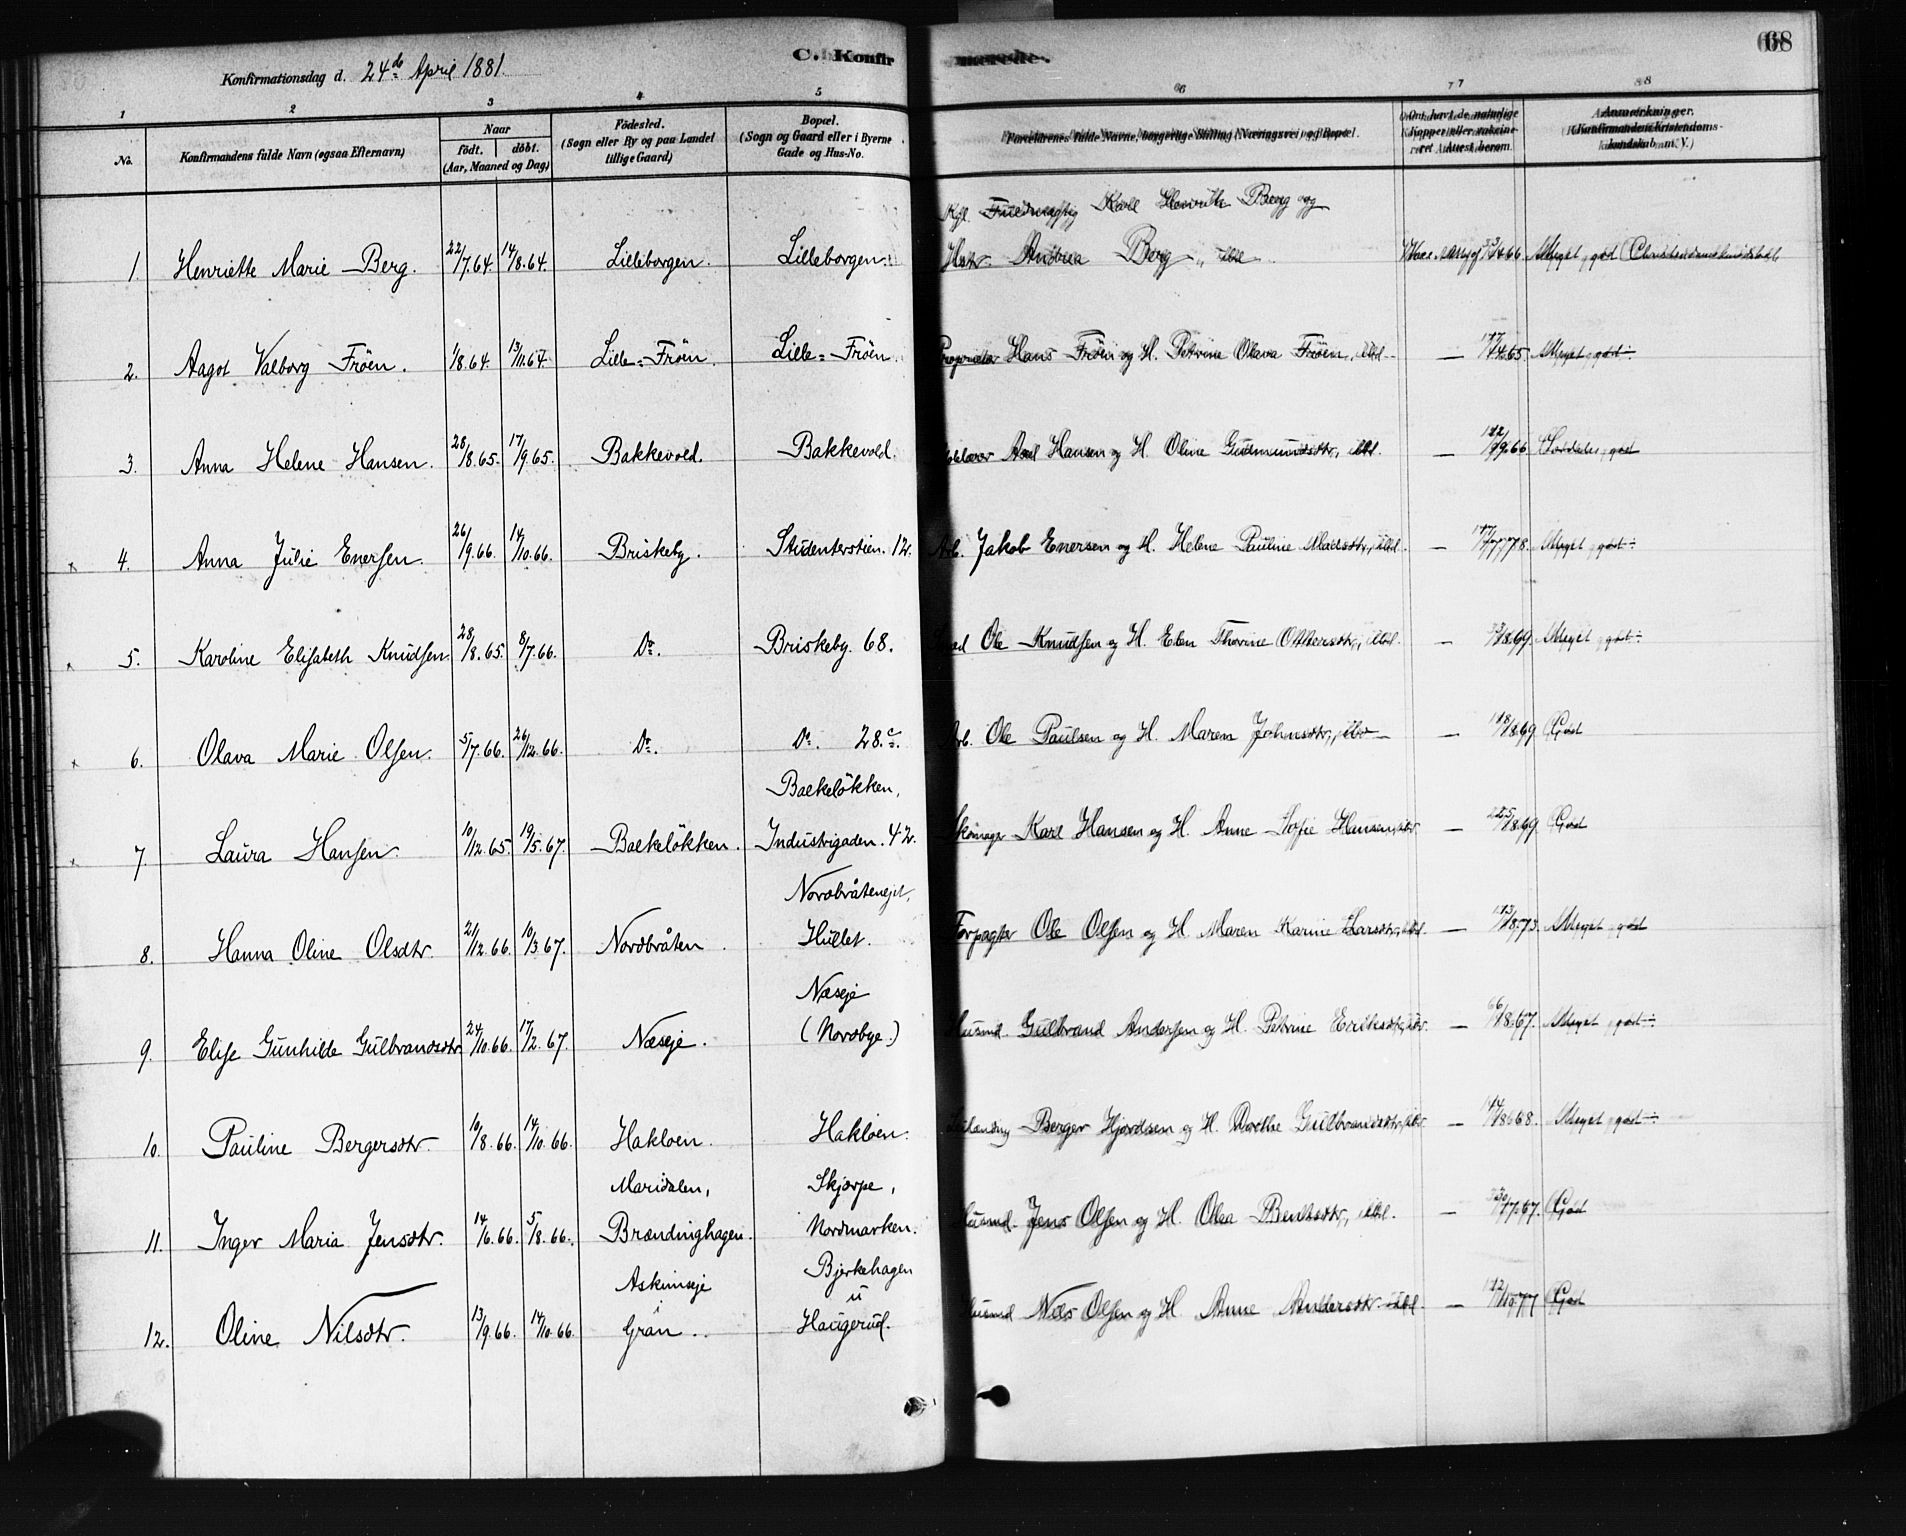 Konfirmationsdag d. 24de April 1881.
C. Konfirmerede.
68
1 2 3 4 5 6 7 8
No.
Konfirmandens fulde Navn (ogsaa Efternavn)
Naar
födt. döbt.
(Aar, Maaned og Dag)
Födested.
(Sogn eller By og paa Landet
tillige Gaard)
Bopæl.
(Sogn og Gaard eller i Byerne
Gade og Hus-No.
Forældrenes fulde Navne, borgerlige Stilling (Næringsvei) og Bopæl.
Om havt de naturlige
Kopper eller vakcine-
ret Attest herom.
Anmerkninger.
(Konfirmandens Kristendoms-
kundskab m. V.)
Karl Henrik Berg og
1. Henriette Marie Berg. 22/7.64. 14/8.64. Lilleborgen. Lilleborgen. Andrea Berg, 66 Meget god
2. Aagot Valborg Fröen. 1/8.64. 13/11.64. Lille=Fröen. Lille=Fröen. Proprietær Hans Fröen og H. Petrine Olava Fröen, ibd. — 17/4.65 Meget god
3. Anna Helene Hansen. 28/8.65. 17/9.65. Bakkevold. Bakkevold. Axel Hansen og H. Oline Gudmundsdtr, ibd. — 12/9.66 Særdeles god
4. Anna Julie Enersen. 26/9.66. 14/10.66. Briskeby. Studenterstien. 12. Arb. Jakob Enersen og H. Helene Pauline Madsdtr, ibd. — 17/7.78. Meget god
5. Karoline Elisabeth Knudsen. 28/8.65. 8/7.66. Do. Briskeby. 68. Ole Knudsen og H. Elen Thorine Ottersdtr, ibd. — 69. Meget god
6. Olava Marie Olsen. 5/7.66. 26/12.66. Do. Do. 28.c. Arb. Ole Paulsen og H. Maren Johnsdtr, ibd — 18/8.69 God
Balkeløkken,
7. Laura Hansen. 10/12.65. 19/5.67. Balkeløkken. Industrigaden. 42. Skomager Karl Hansen og H. Anne Sofie Hansen, ibd — 25/8.69. God
Nordbråtenejet,
8. Hanna Oline Olsdtr. 21/12.66. 10/3.67. Nordbråten. Hullet. Forpagter Ole Olsen og H. Maren Karine Larsdtr, ibd. — 13/8.73. Meget god
Næseje
9. Elise Gunhilde Gulbrandsdtr 24/10.66. 17/2.67. Næseje. (Nordbye.) Husmd. Gulbrand Andersen og H. Petrine Eriksdtr, ibd. — 6/8.67. Meget god
10. Pauline Bergersdtr. 10/8.66. 14/10.66. Hakloen. Hakloen. Berger Hjordsen og H. Dorthe Gulbrandsdtr, ibd — 68. Meget god
Maridalen, Skjærpe,
11. Inger Maria Jensdtr. 14/6.66. 5/8.66. Brændinghagen. Nordmarken. Husmd. Jens Olsen og H. Olea Bentsdtr, ibd. — 30/7.67. God
Askimseje Bjerkehagen
i u
12. Oline Nilsdtr. 13/9.66. 14/10.66. Gran. Haugerud. Husmd Nils Olsen og H Anne Andersdtr ibd — 12/10.77 God